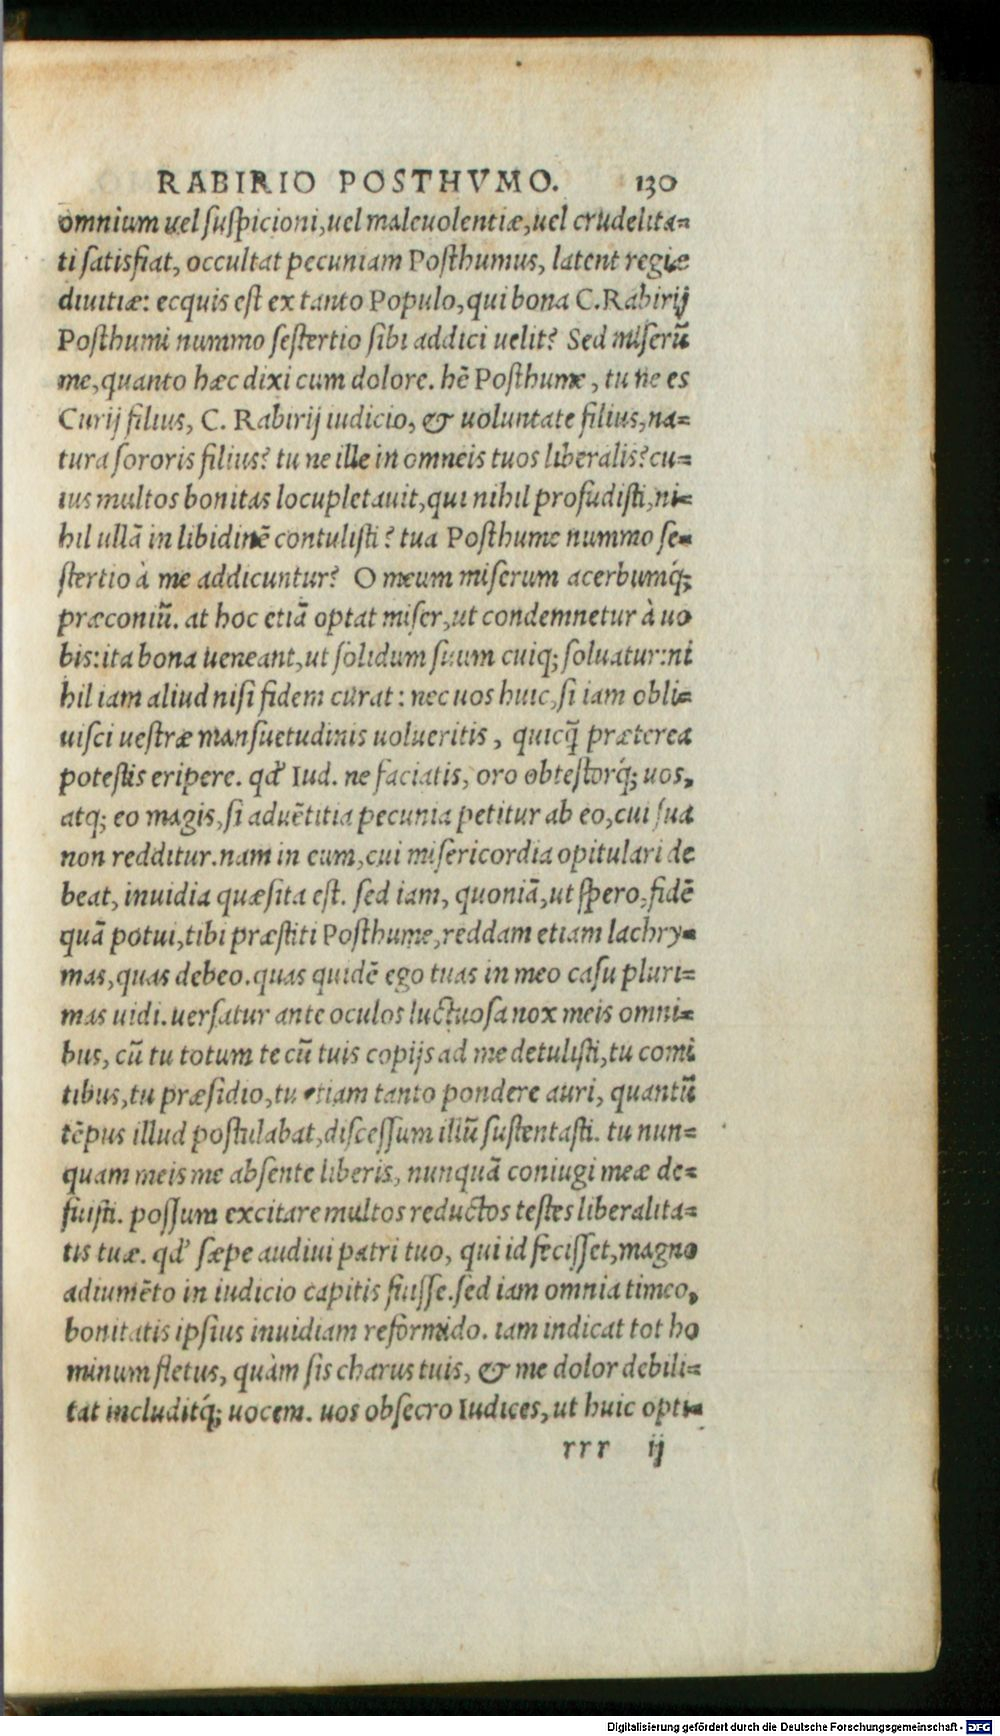 RABIRIO POSTHVMO. 130
omnium uel suspicioni, uel maleuolentiæ, uel crudelita=
ti satisfiat, occultat pecuniam Posthumus, latent regiæ
diuitiæ: ecquis est ex tanto Populo, qui bona C. Rabirij
Posthumi nummo sestertio sibi addici uelit? Sed miserū
me, quanto hæc dixi cum dolore. hē Posthume, tu ne es
Curij filius, C. Rabirij iudicio, & uoluntate filius, na=
tura sororis filius? tu ne ille in omneis tuos liberalis? cu=
ius multos bonitas locupletauit, qui nihil profudisti, ni=
hil ullā in libidinē contulisti? tua Posthume nummo se=
stertio à me addicuntur? O meum miserum acerbumq́;
præconiū. at hoc etiā optat miser, ut condemnetur à uo
bis: ita bona ueneant, ut solidum suum cuiq; soluatur: ni
hil iam aliud nisi fidem curat: nec uos huic, si iam obli=
uisci uestræ mansuetudinis uolueritis, quicq̄ præterea
potestis eripere. qd' Iud. ne faciatis, oro obtestorq́; uos,
atq; eo magis, si aduētitia pecunia petitur ab eo, cui sua
non redditur. nam in eum, cui misericordia opitulari de
beat, inuidia quæsita est. sed iam, quoniā, ut spero, fidē
quā potui, tibi præstiti Posthume, reddam etiam lachry=
mas, quas debeo. quas quidē ego tuas in meo casu pluri=
mas uidi. uersatur ante oculos luctuosa nox meis omni=
bus, cū tu totum te cū tuis copijs ad me detulisti, tu comi
tibus, tu præsidio, tu etiam tanto pondere auri, quantū
tēpus illud postulabat, discessum illū sustentasti. tu nun=
quam meis me absente liberis, nunquā coniugi meæ de=
fuisti. possum excitare multos reductos testes liberalita=
tis tuæ. qd' sæpe audiui patri tuo, qui id fecisset, magno
adiumēto in iudicio capitis fuisse. sed iam omnia timeo,
bonitatis ipsius inuidiam reformido. iam indicat tot ho
minum fletus, quàm sis charus tuis, & me dolor debili=
tat includitq́; uocem. uos obsecro Iudices, ut huic opti=
rrr ij
Digitalisierung gefördert durch die Deutsche Forschungsgemeinschaft - DFG